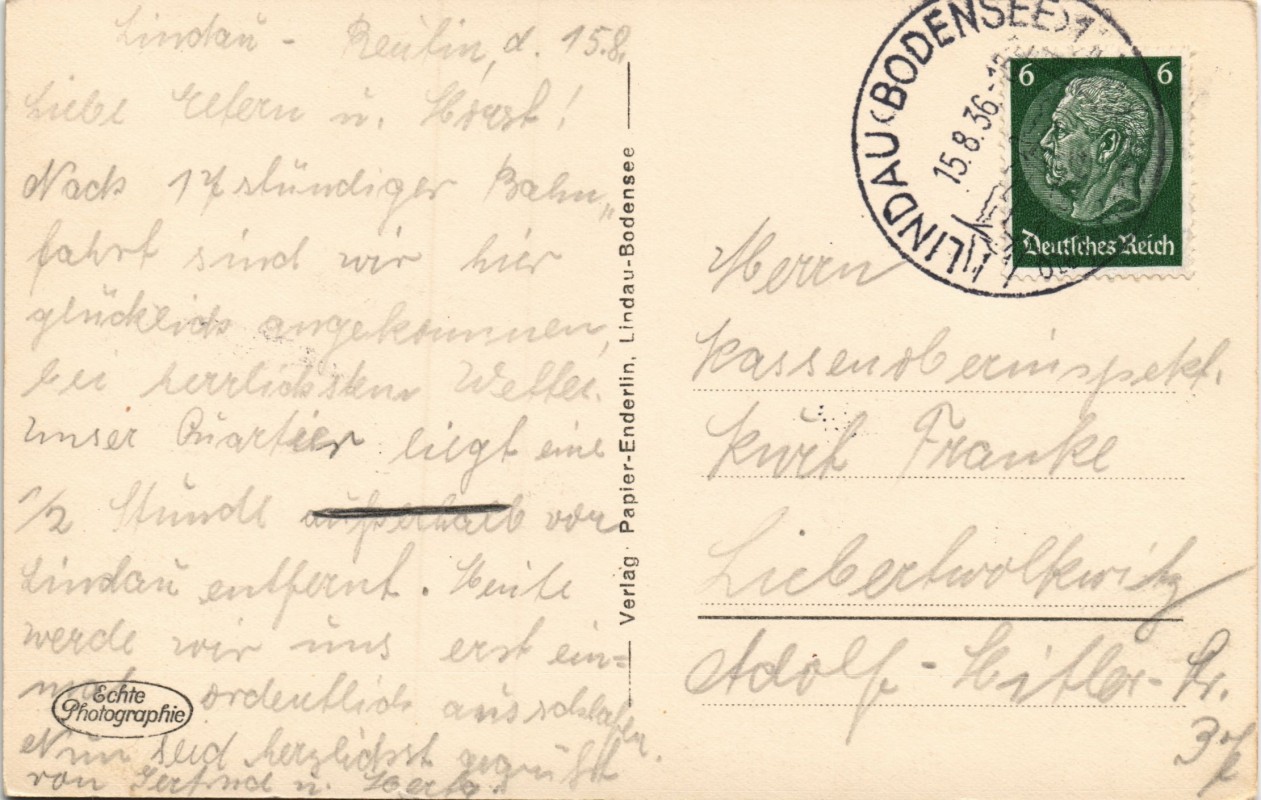 Lindau - Reutin, d. 15.8.
Liebe Eltern u. Horst!
Nach 17 stündiger Bahn„
fahrt sind wir hier
glücklich angekommen,
bei herrlichstem Wetter.
Unser Quartier liegt eine
1/2 Stunde außerhalb vor
Lindau entfernt. Heute
werde wir uns erst ein=
mal ordentlich ausschlafen.
Nun seid herzlichst gegrüßt
von Gertrud u. Herta.
Echte
Photographie
Verlag Papier-Enderlin, Lindau-Bodensee
LINDAU (BODENSEE) 1
15.8.36.-
6 6
Deutsches Reich
Herrn
Kassenoberinspekt.
Kurt Franke
Liebertwolkwitz
Adolf-Hitler-Str.